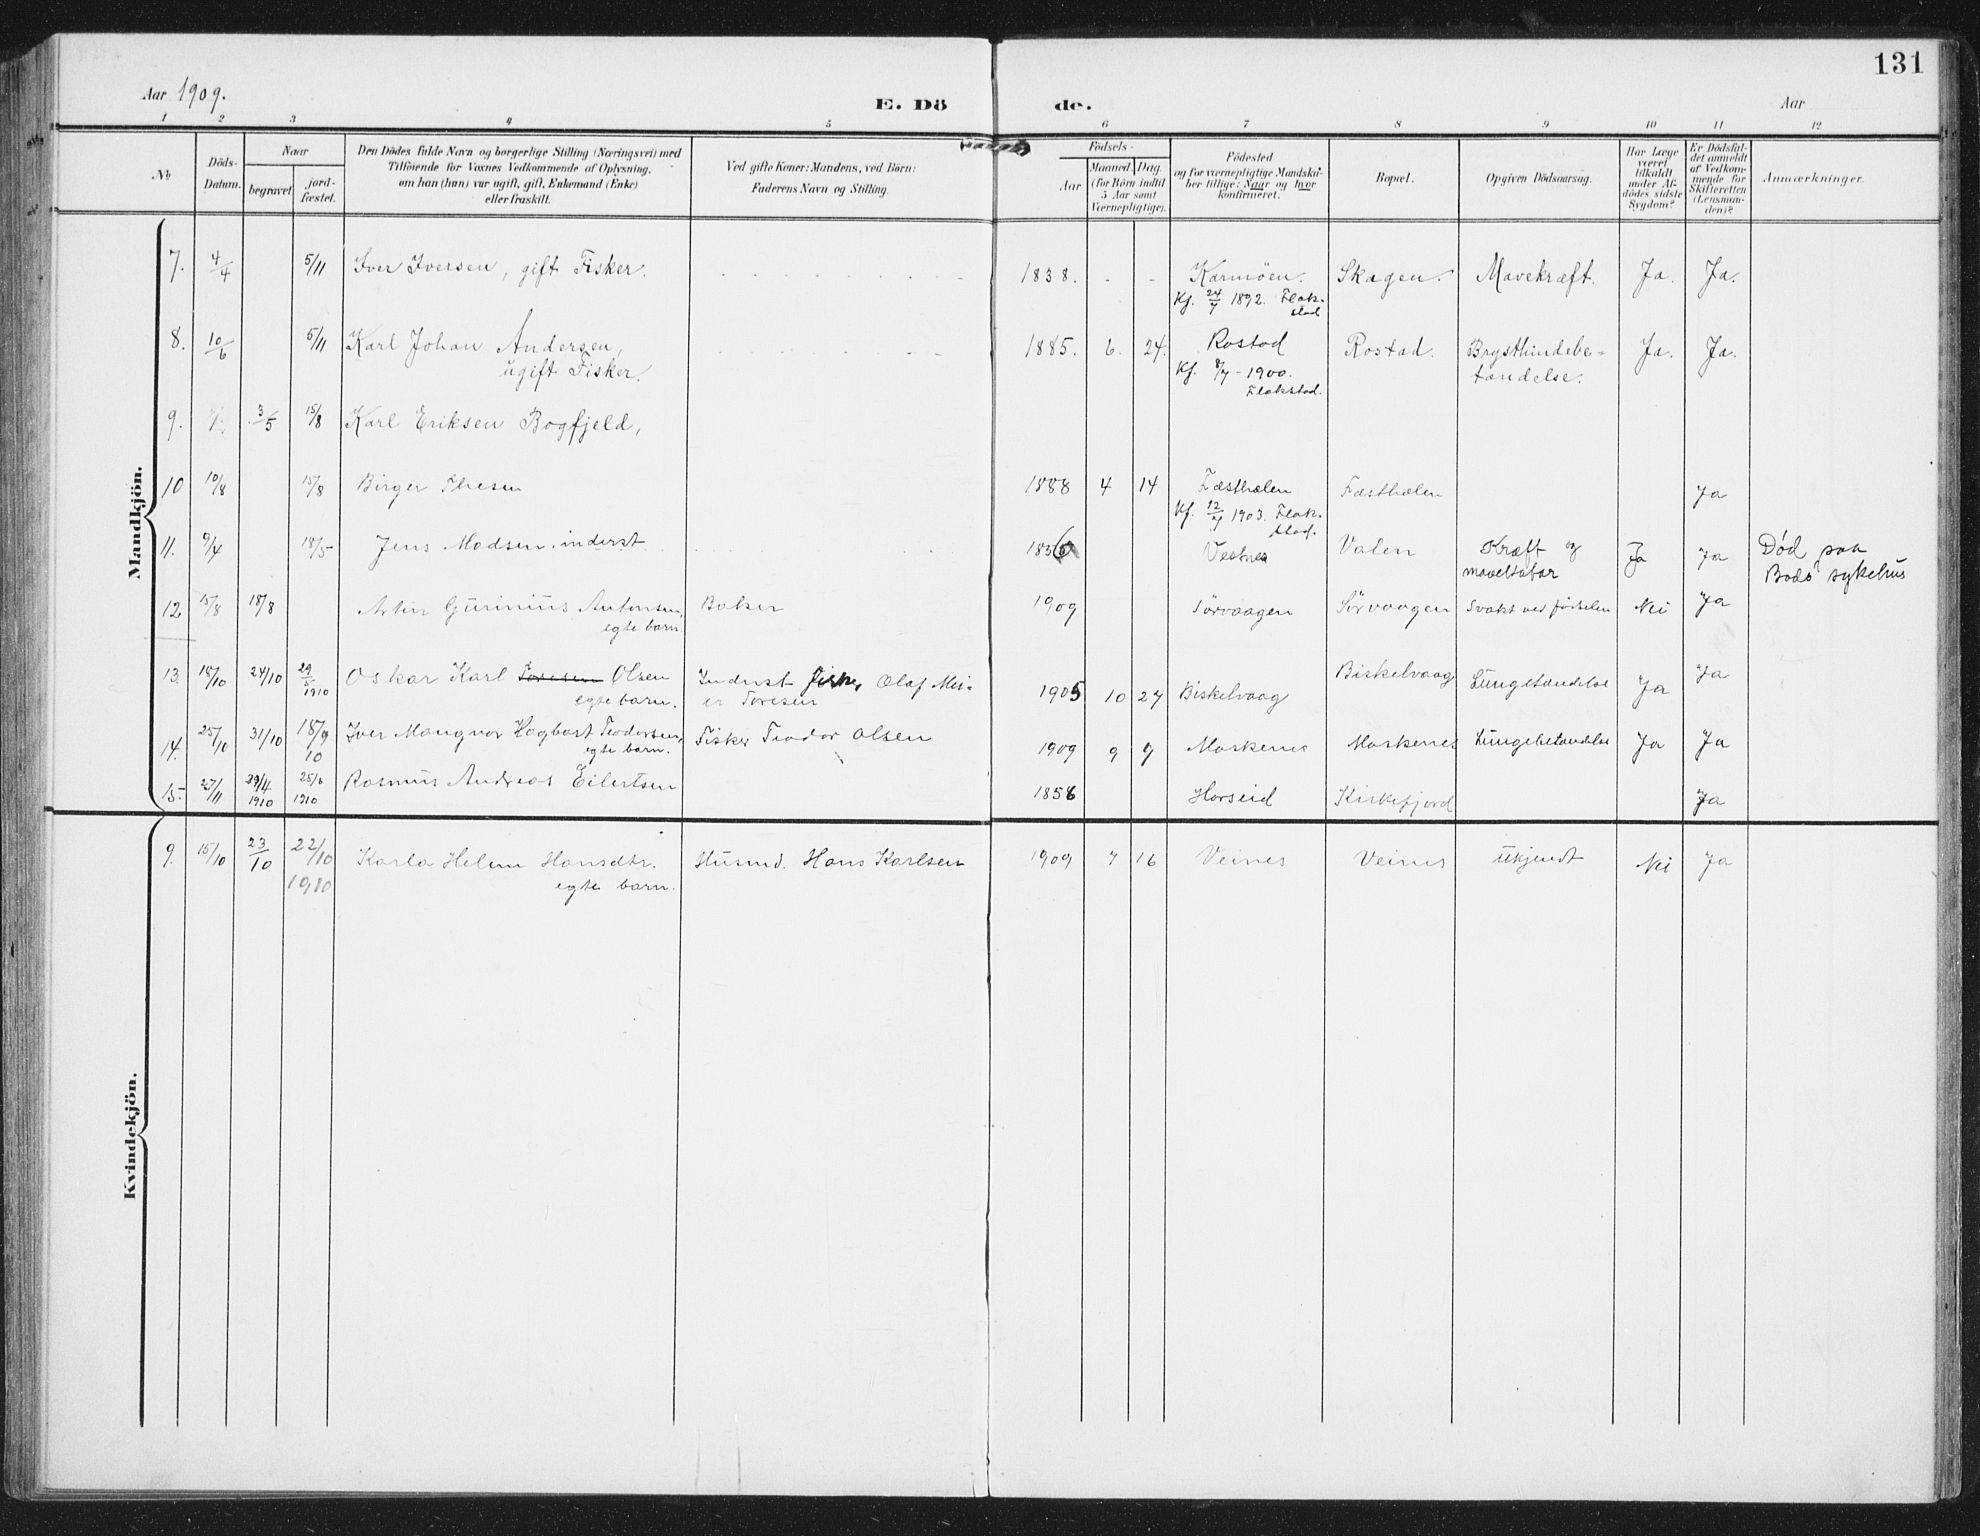 131
Aar 1909.
E. Dö de.
Aar
1 2 3 4 5 6 7 8 9 10 11 12
No
Döds-
Datum.
Naar
begravet
jord-
fæstet.
Den Dödes fulde Navn og borgerlige Stilling (Næringsvei) med
Tilföiende for Voxnes Vedkommende af Oplysning,
om han (hun) var ugift, gift, Enkemand (Enke)
eller fraskilt.
Ved gifte Koner: Mandens, ved Börn:
Faderens Navn og Stilling.
Födsels-
Aar
Maaned. Dag.
(for Börn indtil
5 Aar samt
Værnepligtige).
Födested
og for værnepligtige Mandska-
ber tillige: Naar og hvor
konfirmeret.
Bopæl.
Opgiven Dödsaarsag.
Har Læge
været
tilkaldt
under Af-
dödes sidste
Sygdom?
Er Dödsfal-
det anmeldt
af Vedkom-
mende for
Skifteretten
(Lensman-
den)?
Anmærkninger.
Mandkjön.
7. 4/4 5/11 Iver Iversen, gift Fisker. 1838. - - Karmöen. Skagen. Mavekræft. Ja. Ja.
Kf. 24/7 1892. Flak-
stad
8. 10/6 5/11 Karl Johan Andersen, 1885. 6. 24. Rostad Rostad. Brysthindebe- Ja. Ja.
ugift Fisker. Kf. 8/7 - 1900. tændelse.
Flakstad.
9. 3/5 15/8 Karl Eriksen Bogfjeld,
10 10/8 15/8 Birger Thesen 1888 4 14 Fæsthælen Fæsthælen Ja
Kf. 12/7 1903. Flak-
stad.
11. 9/4 18/5 Jens Madsen, inderst Vestnes Valen Kræft og Ja Ja Død paa
mavekatar Bodø sykehus
12 15/8 18/8 Artur Gurinius Antonsen, Baker 1909 Sørvaagen Sørvaagen Svakt ved fødselen Nei Ja
egte barn
13. 18/10 24/10 29/5 1910 Oskar Karl Toresen Olsen Indrest Fisker Olaf Mei- 1905 10 27 Biskelvaag Biskelvaag Lungetændelse Ja Ja
egte barn. er Toresen
14. 25/10 31/10 18/9 10 Iver Mangnor Hagbart Teodorsen, Fisker Teodor Olsen 1909 9 9 Moskenes Moskenes Lungebetændelse Ja Ja
egte barn.
15. 27/11 29/4 1910 25/6 1910 Rasmus Andreas Eilertsen 1858 Horseid Kirkefjord Ja
Kvindekjön.
9. 15/10 23/10 22/10 1910 Karla Helene Hansdtr. Husmd. Hans Karlsen 1909 7 16 Veines Veines Ukjendt Nei Ja
egte barn.